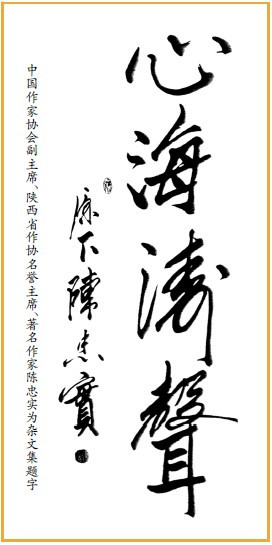 心海涛聲
原下陳忠實
中国作家协会副主席、陕西省作协名誉主席、著名作家陈忠实为杂文集题字